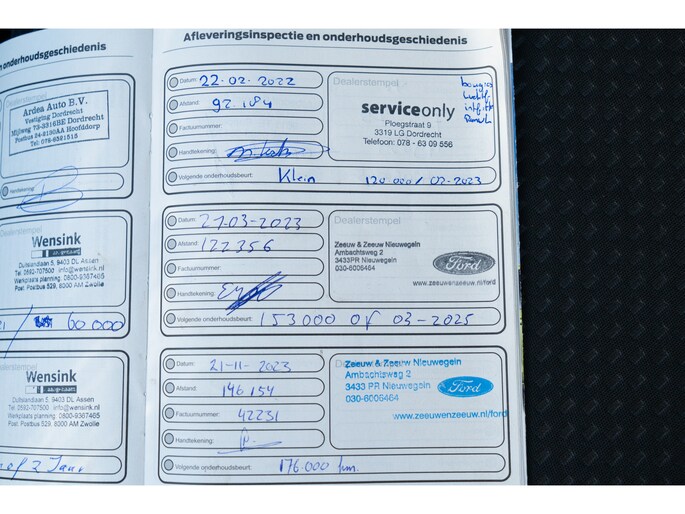 onderhoudsgeschiedenis
Ardea Auto B.V.
Vestiging Dordrecht
Mijlweg 73-3316BE Dordrecht
Postbus 24-2130AA Hoofddorp
Tel. 078-6521515
Handtekening:
Wensink
Duitslandlaan 5, 9403 DL Assen
Tel. 0592-707500 info@wensink.nl
Werkplaats planning: 0800-9367465
Post: Postbus 529, 8000 AM Zwolle
60000
Wensink
Duitslandlaan 5, 9403 DL Assen
Tel. 0592-707500 info@wensink.nl
Werkplaats planning: 0800-9367465
Post: Postbus 529, 8000 AM Zwolle
of 2 Jaar
Afleveringsinspectie en onderhoudsgeschiedenis
Datum: 22-02-2022
Afstand: 92.184
Factuurnummer:
Handtekening:
Volgende onderhoudsbeurt: Klein 120.000/02-2023
Dealerstempel
serviceonly
Ploegstraat 9
3319 LG Dordrecht
Telefoon: 078 - 63 09 556
bougies
Datum: 21-03-2023
Afstand: 122356
Factuurnummer:
Handtekening:
Volgende onderhoudsbeurt: 153000 of 03-2025
Dealerstempel
Zeeuw & Zeeuw Nieuwegein
Ambachtsweg 2
3433PR Nieuwegein
030-6006464
Ford
www.zeeuwenzeeuw.nl/ford
Datum: 21-11-2023
Afstand: 146154
Factuurnummer: 42231
Handtekening:
Volgende onderhoudsbeurt: 176.000 km.
Dealerstempel
Zeeuw & Zeeuw Nieuwegein
Ambachtsweg 2
3433 PR Nieuwegein
030-6006464
Ford
www.zeeuwenzeeuw.nl/ford